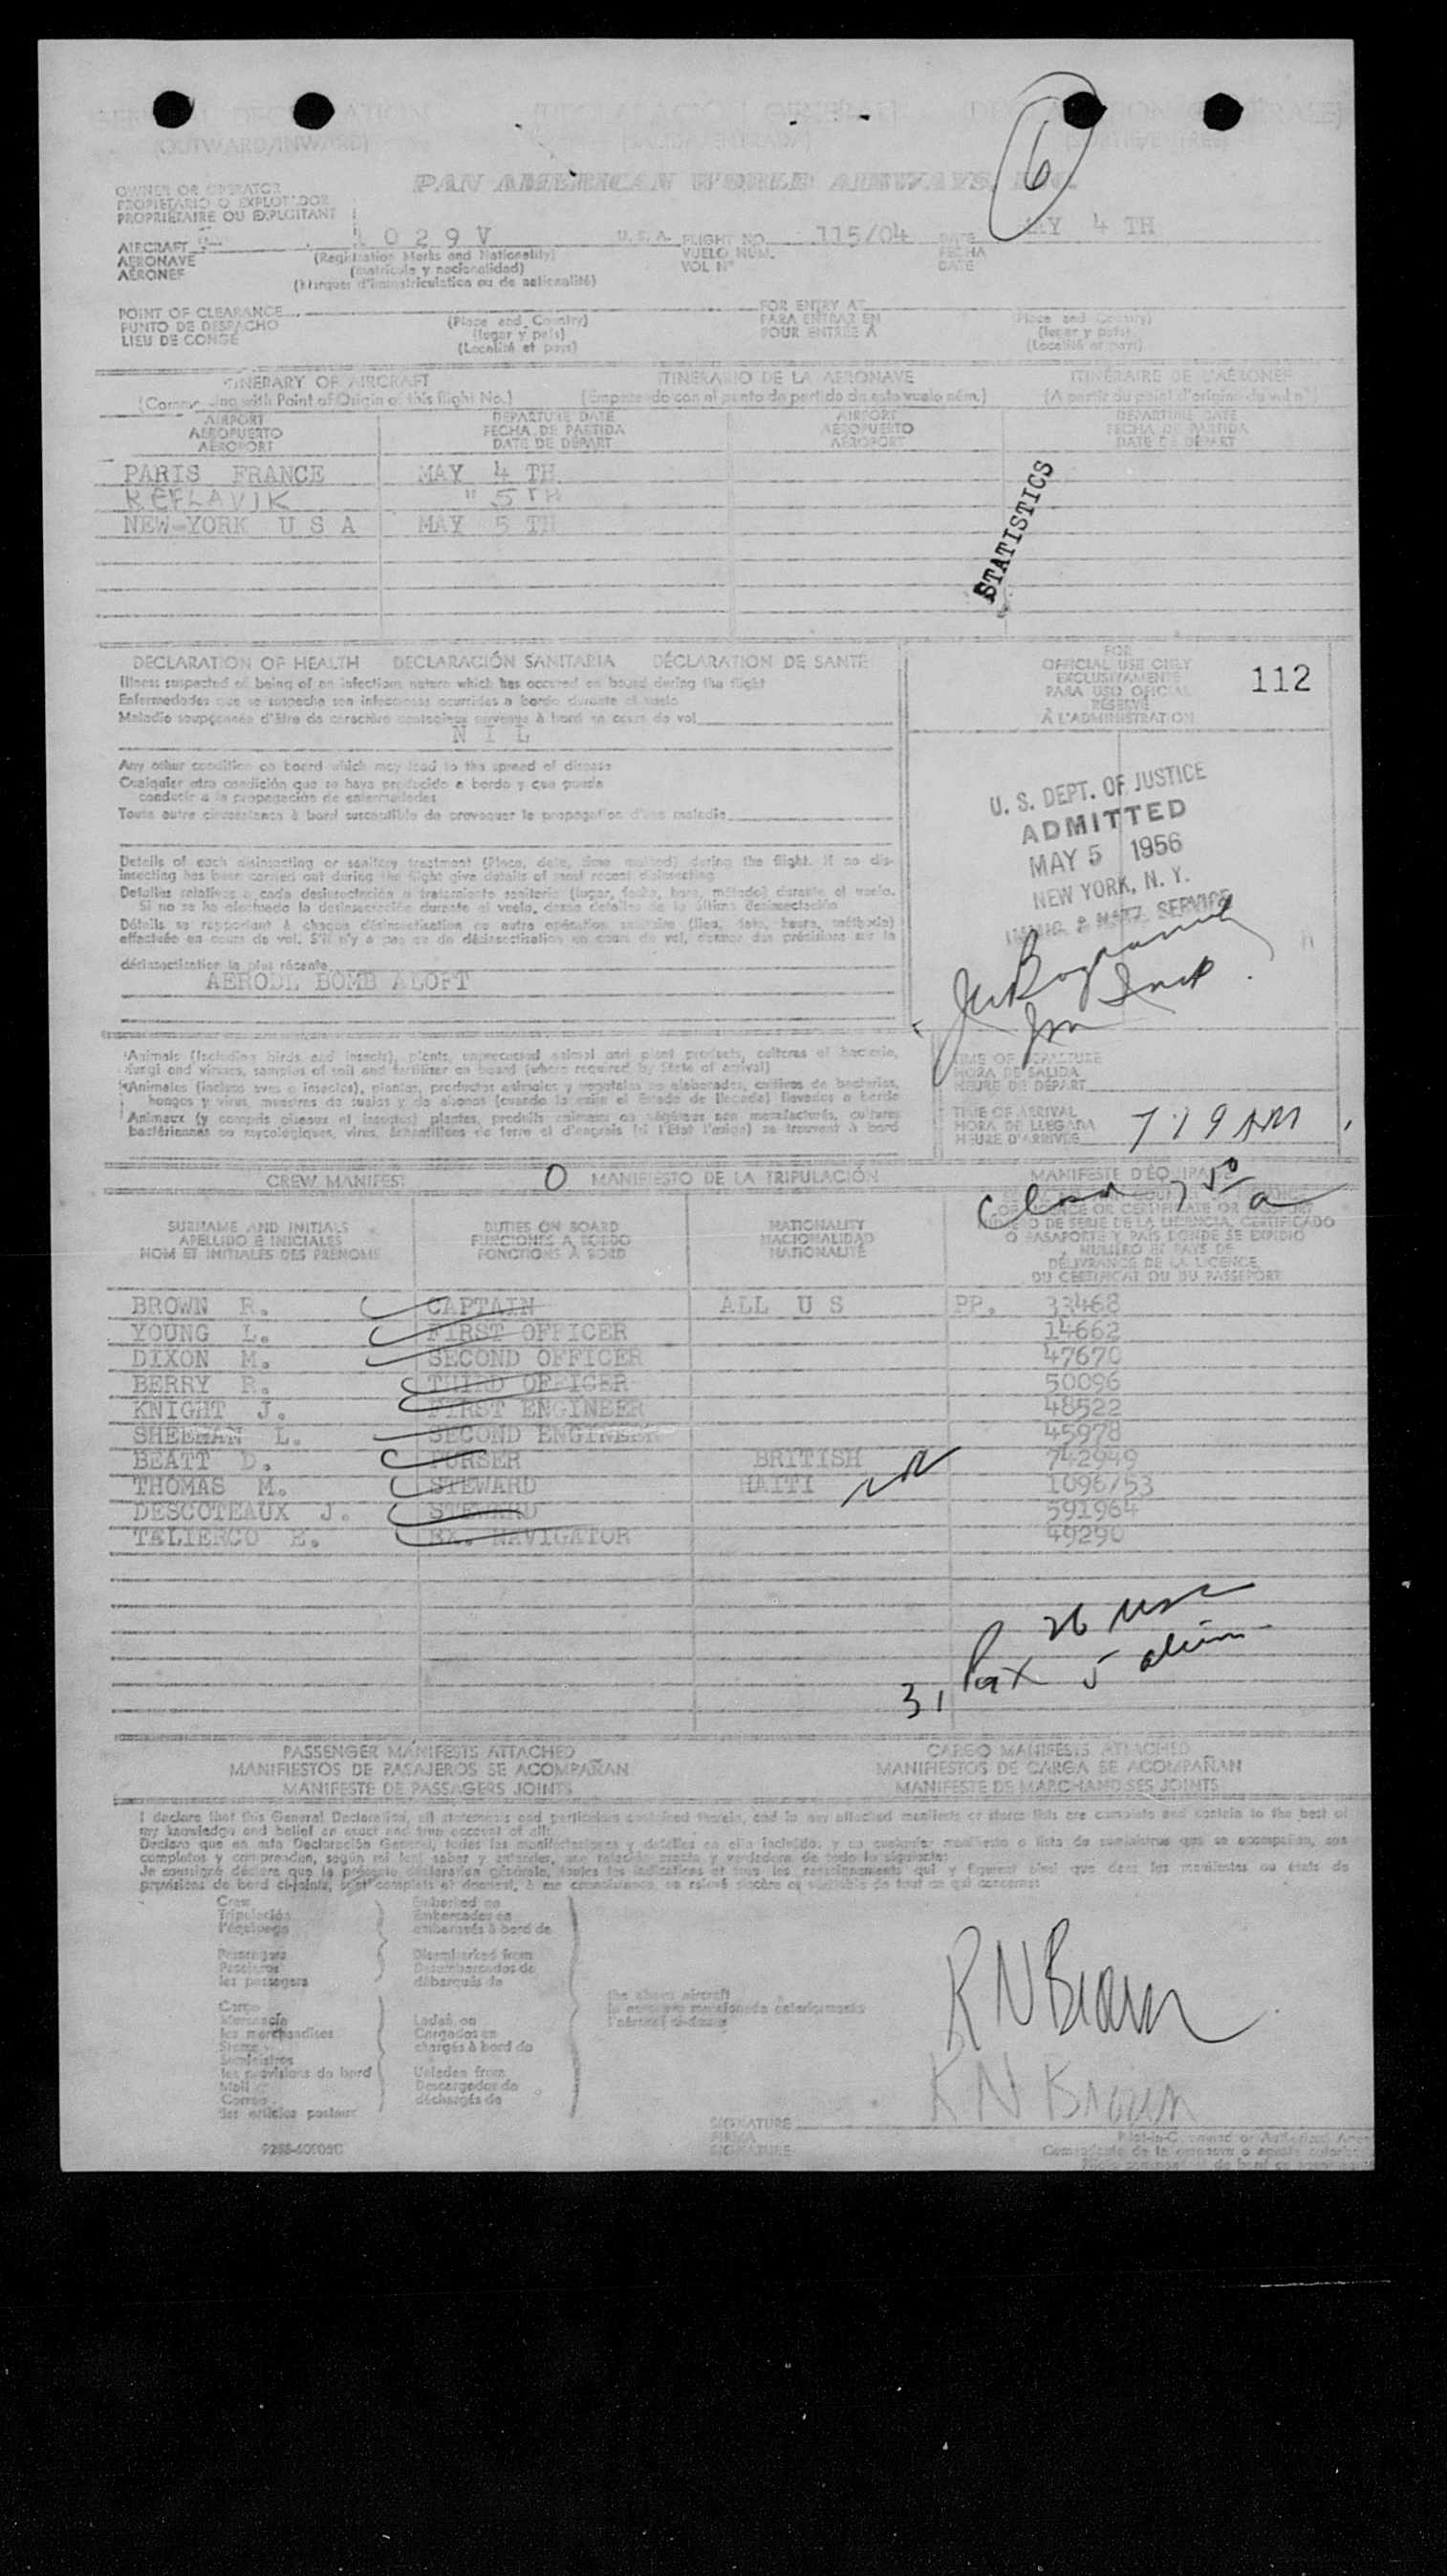 GENERAL DECLARATION (DECLARACION GENERAL) (DECLARATION GÉNÉRALE)
(OUTWARD/INWARD)
6
OWNER OR OPERATOR
PROPIETARIO O EXPLOTADOR
PROPRIÉTAIRE OU EXPLOITANT
PAN AMERICAN WORLD AIRWAYS, INC.
AIRCRAFT 1029V U.S.A. FLIGHT NO. 115/04 DATE MAY 4 TH
AERONAVE (Registration Marks and Nationality) VUELO NUM. FECHA
AÉRONEF (matrícula y nacionalidad) VOL Nº DATE
(Marques d'immatriculation ou de nationalité)
POINT OF CLEARANCE FOR ENTRY AT
PUNTO DE DESPACHO (Place and Country) PARA ENTRAR EN (Place and Country)
LIEU DE CONGÉ (lugar y país) POUR ENTRÉE À (lugar y país)
(Localité et pays) (Localité et pays)
ITINERARY OF AIRCRAFT ITINERARIO DE LA AERONAVE ITINÉRAIRE DE L'AÉRONEF
(Commencing with Point of Origin of this flight No.) (Empezando con el punto de partida de este vuelo núm.) (A partir du point d'origine du vol nº)
AIRPORT DEPARTURE DATE AIRPORT DEPARTURE DATE
AEROPUERTO FECHA DE PARTIDA AEROPUERTO FECHA DE PARTIDA
AÉROPORT DATE DE DÉPART AÉROPORT DATE DE DÉPART
PARIS FRANCE MAY 4 TH
KEFLAVIK " 5TH
NEW-YORK U S A MAY 5 TH
STATISTICS
DECLARATION OF HEALTH DECLARACIÓN SANITARIA DÉCLARATION DE SANTÉ
Illness suspected of being of an infectious nature which has occured on board during the flight
Enfermedades que se sospecha son infecciosas ocurridas a bordo durante el vuelo
Maladie soupçonnée d'être de caractère contagieux survenue à bord en cours de vol
N I L
FOR
OFFICIAL USE ONLY
EXCLUSIVAMENTE
PARA USO OFICIAL
RÉSERVÉ
À L'ADMINISTRATION
112
Any other condition on board which may lead to the spread of disease
Cualquier otra condición que se haya producido a bordo y que pueda
conducir a la propagación de enfermedades
Toute autre circonstance à bord susceptible de provoquer la propagation d'une maladie
U. S. DEPT. OF JUSTICE
ADMITTED
MAY 5 1956
NEW YORK, N. Y.
IMMIG. & NATZ. SERVICE
Details of each disinsecting or sanitary treatment (Place, date, time, method) during the flight. If no dis-
insecting has been carried out during the flight give details of most recent disinsecting
Detalles relativos a cada desinsectación o tratamiento sanitario (lugar, fecha, hora, método) durante el vuelo.
Si no se ha efectuado la desinsectación durante el vuelo, dense detalles de la última desinsectación
Détails se rapportant à chaque désinsectisation ou autre opération sanitaire (lieu, date, heure, méthode)
effectuée en cours de vol. S'il n'y a pas eu de désinsectisation en cours de vol, donner des précisions sur la
désinsectisation la plus récente
AEROSL BOMB ALOFT
Animals (including birds and insects), plants, unprocessed animal and plant products, cultures of bacteria,
fungi and viruses, samples of soil and fertilizer on board (where required by State of arrival)
Animales (incluso aves e insectos), plantas, productos animales y vegetales no elaborados, cultivos de bacterias,
hongos y virus, muestras de suelos y de abonos (cuando lo exija el Estado de llegada) llevados a bordo
Animaux (y compris oiseaux et insectes) plantes, produits animaux ou végétaux non manufacturés, cultures
bactériennes ou mycologiques, virus, échantillons de terre et d'engrais (si l'État l'exige) se trouvant à bord
TIME OF DEPARTURE
HORA DE SALIDA
HEURE DE DÉPART
TIME OF ARRIVAL
HORA DE LLEGADA
HEURE D'ARRIVÉE 719 AM
CREW MANIFEST 0 MANIFIESTO DE LA TRIPULACIÓN MANIFESTE D'ÉQUIPAGE
750 a
SURNAME AND INITIALS DUTIES ON BOARD NATIONALITY LICENCE OR CERTIFICATE OR
APELLIDO E INICIALES FUNCIONES A BORDO NACIONALIDAD NUMERO DE SERIE DE LA LICENCIA, CERTIFICADO
NOM ET INITIALES DES PRÉNOMS FONCTIONS À BORD NATIONALITÉ O PASAPORTE Y PAÍS DONDE SE EXPIDIÓ
NUMÉRO ET PAYS DE
DÉLIVRANCE DE LA LICENCE
DU CERTIFICAT OU DU PASSEPORT
BROWN R. CAPTAIN ALL U S PP. 33468
YOUNG L. FIRST OFFICER 14662
DIXON M. SECOND OFFICER 47670
BERRY R. THIRD OFFICER 50096
KNIGHT J. FIRST ENGINEER 48522
SHEEHAN L. SECOND ENGINEER 45978
BEATT D. PURSER BRITISH 742949
THOMAS M. STEWARD HAITI 1096/53
DESCOTEAUX J. STEWARD 591964
TALIERCO E. EX. NAVIGATOR 49290
26 usc
31 Pax 5 alien
PASSENGER MANIFESTS ATTACHED CARGO MANIFESTS ATTACHED
MANIFIESTOS DE PASAJEROS SE ACOMPAÑAN MANIFIESTOS DE CARGA SE ACOMPAÑAN
MANIFESTE DE PASSAGERS JOINTS MANIFESTE DE MARCHANDISES JOINTS
I declare that this General Declaration, all statements and particulars contained therein, and in any attached manifests or stores lists are complete and contain to the best of
my knowledge and belief an exact and true account of all:
Declaro que en esta Declaración General, todas las manifestaciones y detalles en ella incluido, y en cualquier manifiesto o lista de suministros que se acompañan, son
completos y comprenden, según mi leal saber y entender, una relación exacta y verdadera de todo lo siguiente:
Je soussigné déclare que la présente déclaration générale, toutes les indications et tous les renseignements qui y figurent ainsi que dans les manifestes ou états de
provisions de bord ci-joints, sont complets et donnent, à ma connaissance, un relevé sincère et véritable de tout ce qui concerne:
Crew Embarked on
Tripulación Embarcados en
l'équipage embarqués à bord de
Passengers Disembarked from
Pasajeros Desembarcados de
les passagers débarqués de
the above aircraft
la aeronave mencionada anteriormente
l'aéronef ci-dessus
Cargo Laden on
Mercancía Cargados en
les marchandises chargés à bord de
Stores
Suministros
les provisions de bord Unladen from
Mail Descargados de
Correo déchargés de
les articles postaux
R N Brown
R N Brown
SIGNATURE
FIRMA
SIGNATURE
Pilot-in-Command or Authorized Agent
Comandante de la aeronave o agente autorizado